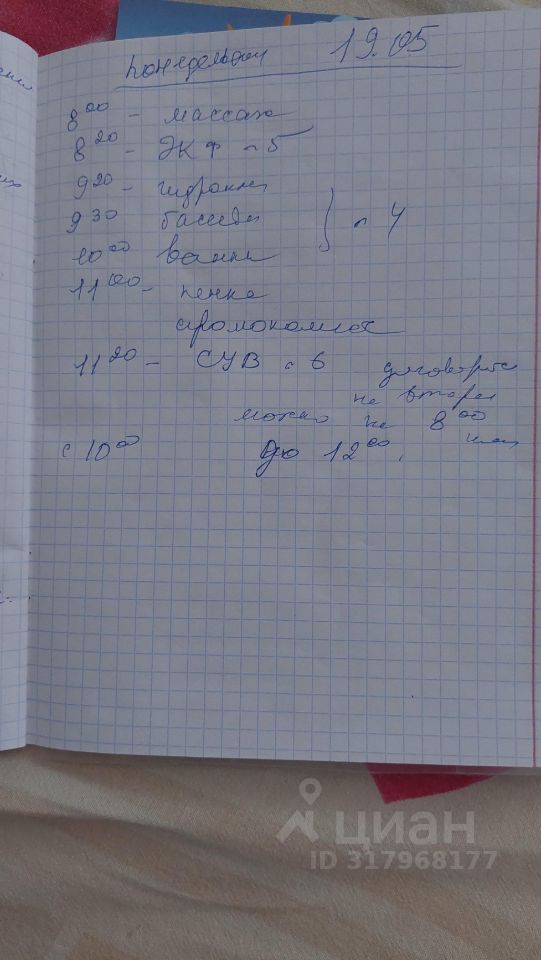 понедельник 19.05
8⁰⁰ - массаж
8²⁰ - ЭКФ - 5
9²⁰ - гидрокин
9³⁰ бассейн
10⁰⁰ ванны } п 4
11⁰⁰ - пенка
аромокомпл
11²⁰ - СУВ с 6 договорится
на вторник
можно на 8⁰⁰
с 10⁰⁰ до 12⁰⁰,
циан
ID 317968177